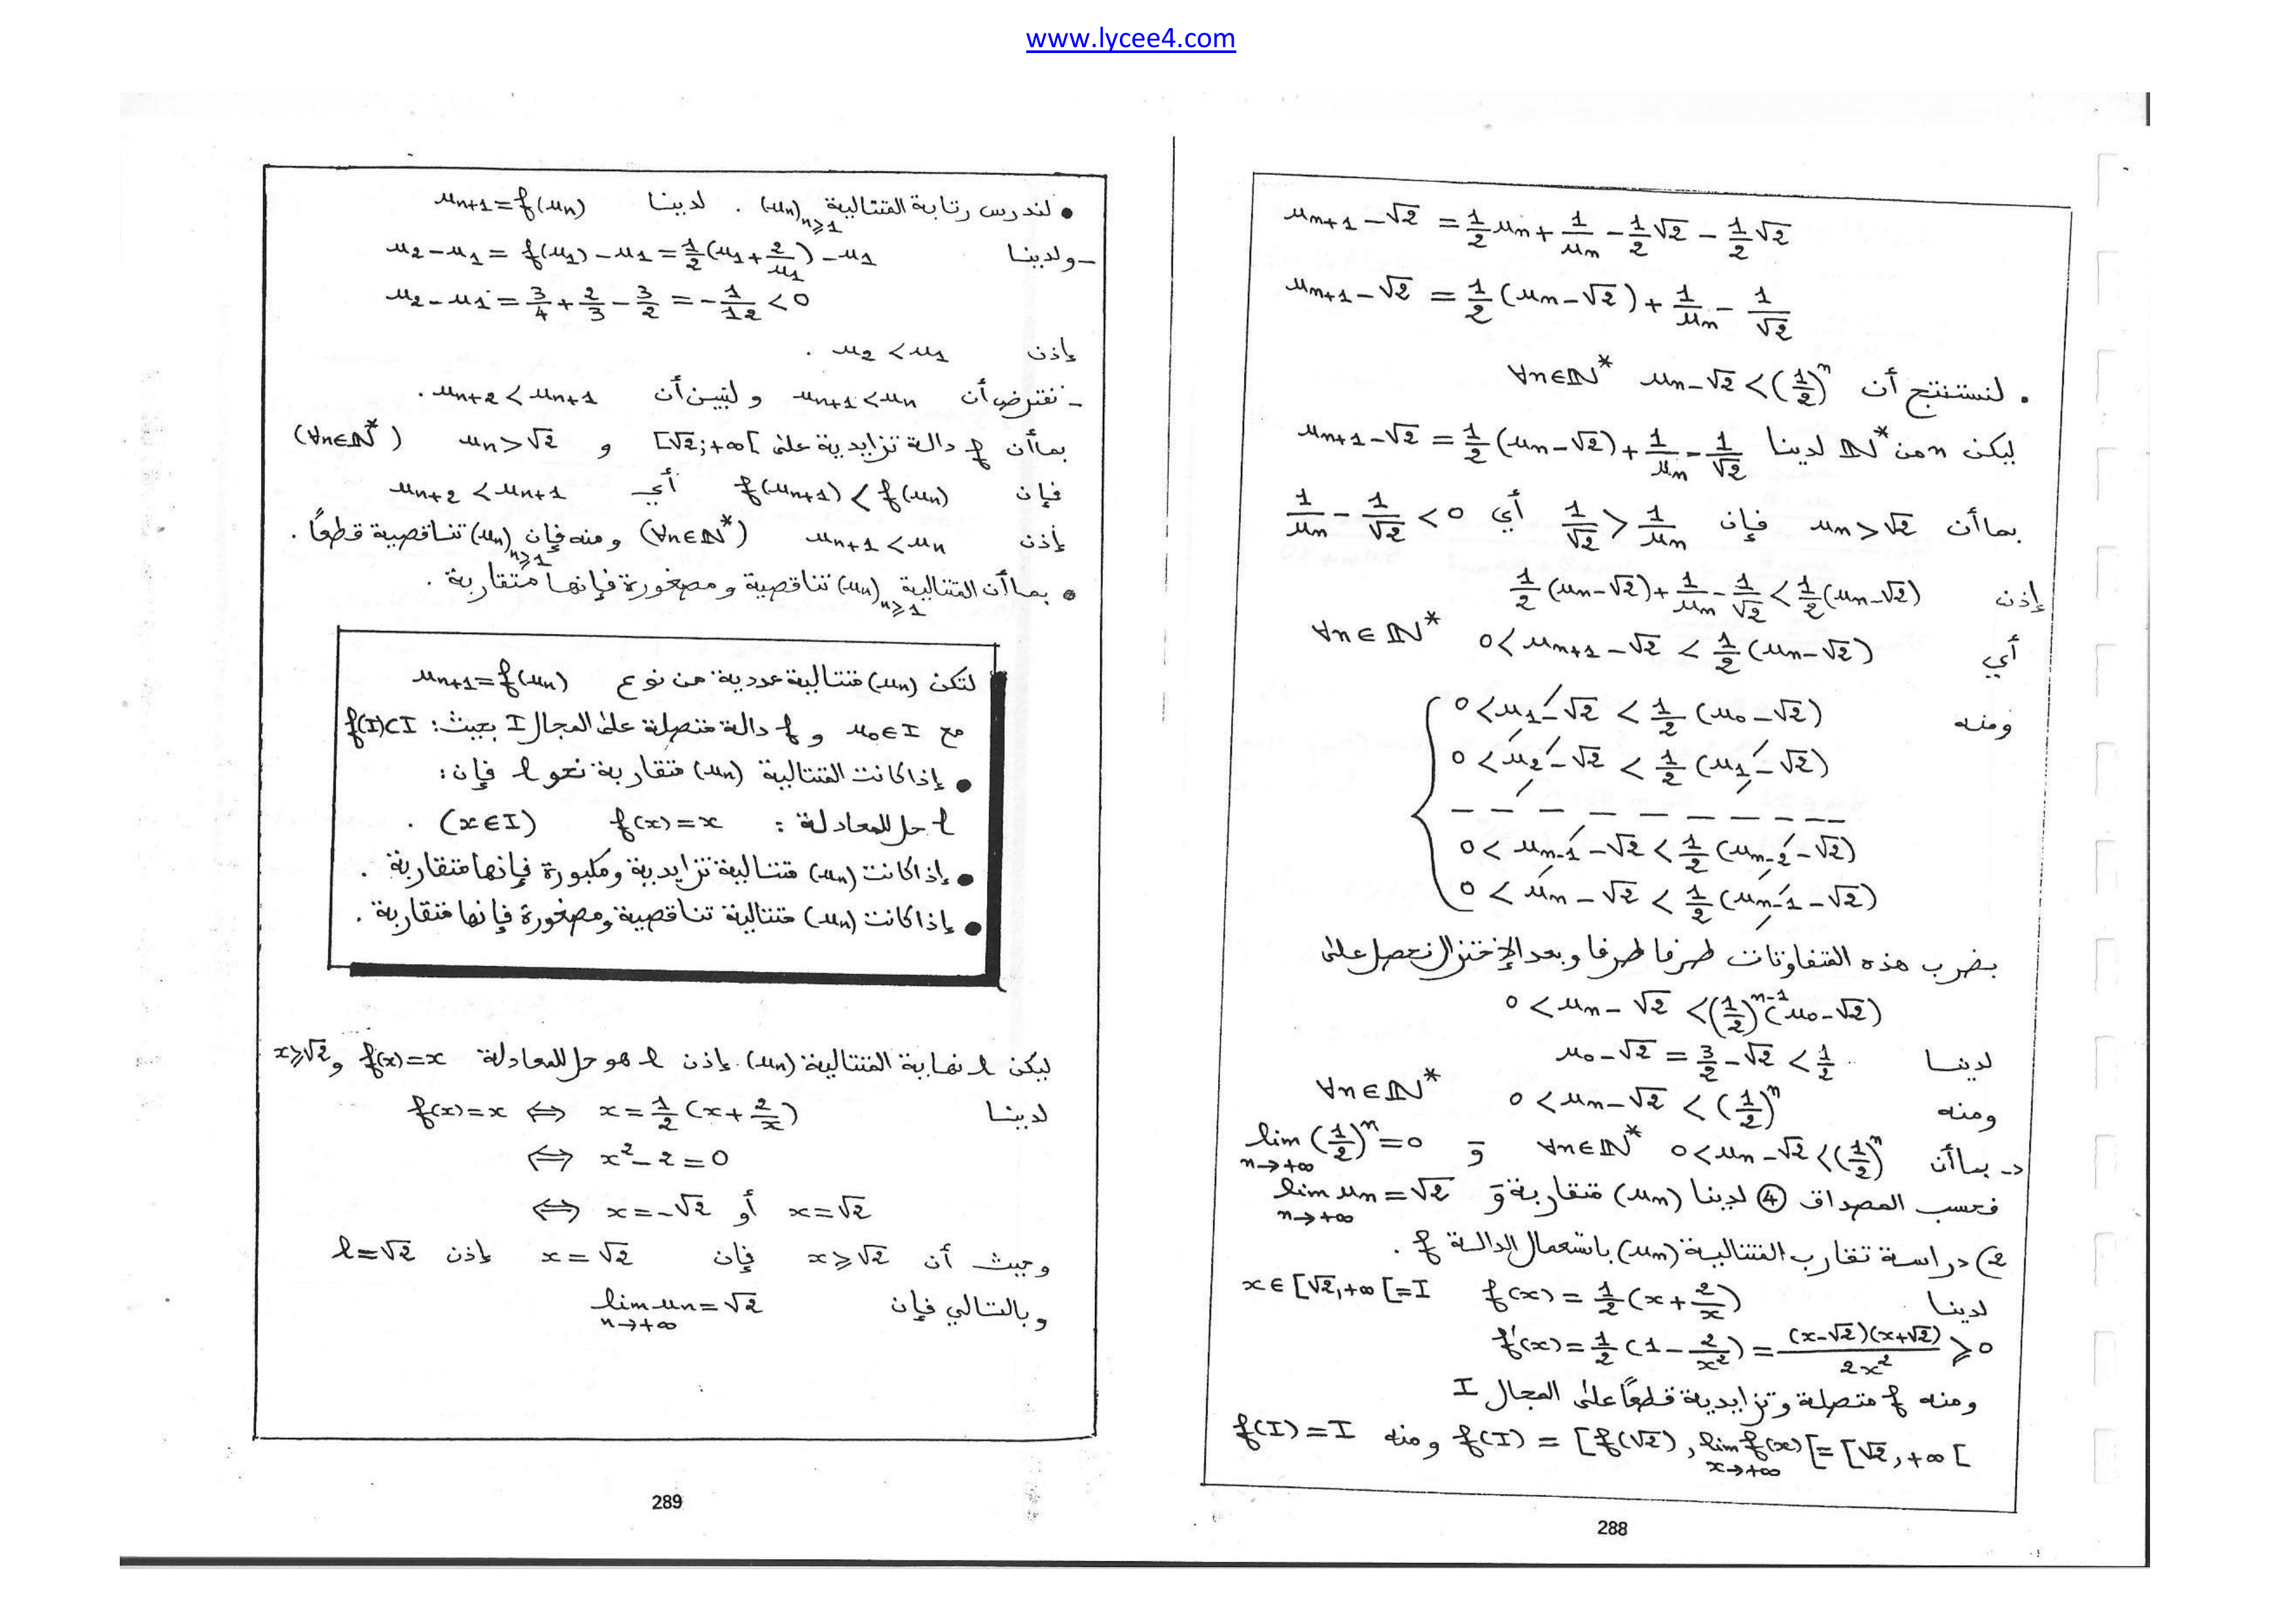 www.lycee4.com
μn+1 − √2 = 1/2 μn + 1/μn − 1/2 √2 − 1/2 √2
μn+1 − √2 = 1/2 (μn − √2) + 1/μn − 1/√2
• لنستنتج أن μn − √2 < (1/2)^n ∀n∈ℕ*
ليكن n من ℕ* لدينا μn+1 − √2 = 1/2 (μn − √2) + 1/μn − 1/√2
بما أن μn > √2 فإن 1/√2 > 1/μn أي 1/μn − 1/√2 < 0
إذن 1/2 (μn − √2) + 1/μn − 1/√2 < 1/2 (μn − √2)
أي 0 < μn+1 − √2 < 1/2 (μn − √2) ∀n∈ℕ*
ومنه 0 < μ1 − √2 < 1/2 (μ0 − √2)
0 < μ2 − √2 < 1/2 (μ1 − √2)
− − − − − − − − − −
0 < μn-1 − √2 < 1/2 (μn-2 − √2)
0 < μn − √2 < 1/2 (μn-1 − √2)
بضرب هذه المتفاوتات طرفا طرفا وبعد الإختزال نحصل على
0 < μn − √2 < (1/2)^(n-1) (μ0 − √2)
لدينا μ0 − √2 = 3/2 − √2 < 1/2
ومنه 0 < μn − √2 < (1/2)^n ∀n∈ℕ*
د- بما أن 0 < μn − √2 < (1/2)^n ∀n∈ℕ* و lim n→+∞ (1/2)^n = 0
فحسب المصداق ④ لدينا (μn) متقاربة و lim n→+∞ μn = √2
2) دراسة تقارب المتتالية (μn) باستعمال الدالة f .
لدينا f(x) = 1/2 (x + 2/x) x ∈ [√2, +∞[ = I
f'(x) = 1/2 (1 − 2/x²) = (x−√2)(x+√2)/2x² ⩾ 0
ومنه f متصلة وتزايدية قطعاً على المجال I
f(I) = [f(√2), lim x→+∞ f(x)[ = [√2, +∞[ ومنه f(I) = I
288
• لندرس رتابة المتتالية (μn)n⩾1 . لدينا μn+1 = f(μn)
- ولدينا μ2 − μ1 = f(μ1) − μ1 = 1/2 (μ1 + 2/μ1) − μ1
μ2 − μ1 = 3/4 + 2/3 − 3/2 = −1/12 < 0
إذن μ2 < μ1 .
- نفترض أن μn+1 < μn و لنبين أن μn+2 < μn+1 .
بما أن f دالة تزايدية على [√2; +∞[ و μn > √2 (∀n∈ℕ*)
فإن f(μn+1) < f(μn) أي μn+2 < μn+1
إذن μn+1 < μn (∀n∈ℕ*) ومنه فإن (μn)n⩾1 تناقصية قطعاً .
• بما أن المتتالية (μn)n⩾1 تناقصية ومصغورة فإنها متقاربة .
لتكن (μn) متتالية عددية من نوع μn+1 = f(μn)
مع μ0 ∈ I و f دالة متصلة على المجال I بحيث: f(I)⊂I
• إذا كانت المتتالية (μn) متقاربة نحو l فإن:
l حل للمعادلة : f(x) = x (x∈I) .
• إذا كانت (μn) متتالية تزايدية ومكبورة فإنها متقاربة .
• إذا كانت (μn) متتالية تناقصية ومصغورة فإنها متقاربة .
ليكن l نهاية المتتالية (μn). إذن l هو حل للمعادلة f(x) = x و x⩾√2
لدينا f(x) = x ⟺ x = 1/2 (x + 2/x)
⟺ x² − 2 = 0
⟺ x = −√2 أو x = √2
وحيث أن x ⩾ √2 فإن x = √2 إذن l = √2
وبالتالي فإن lim n→+∞ μn = √2
289